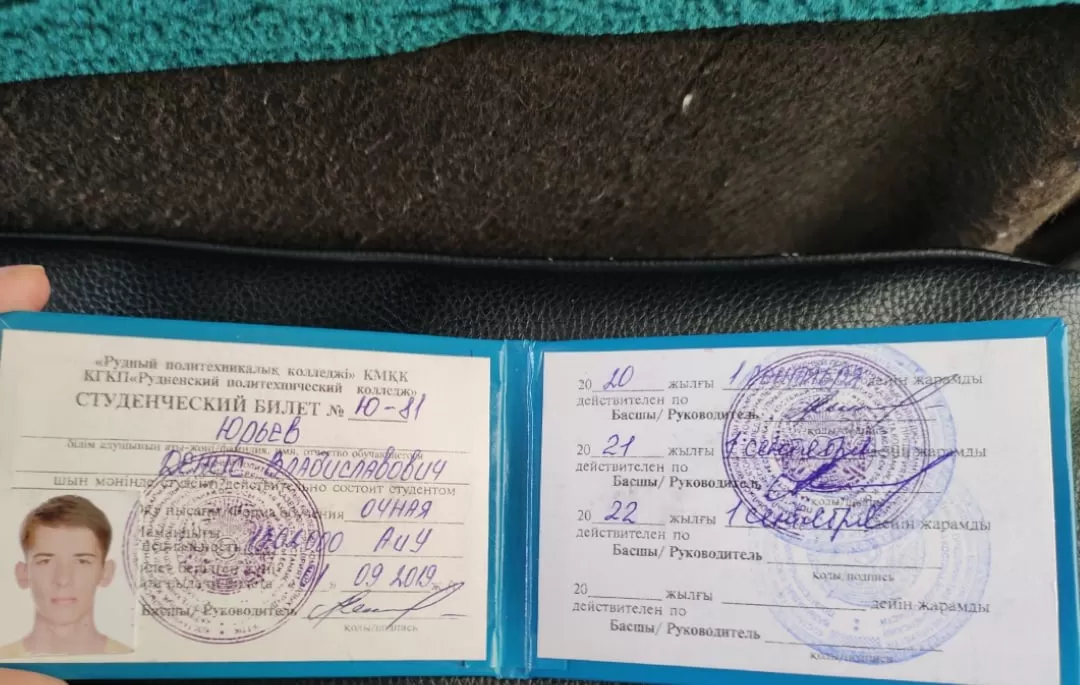 «Рудный политехникалық колледжі» КМҚК
КГКП«Рудненский политехнический колледж»
СТУДЕНЧЕСКИЙ БИЛЕТ № Ю-81
Юрьев
білім алушының аты-жөні/фамилия, имя, отчество обучающегося
Денис Владиславович
шын мәнінде студент/действительно состоит студентом
Оқу нысаны/Форма обучения очная
Мамандығы
специальности 1302000 АиУ
09 2019 ж/г
Басшы/ Руководитель
қолы/подпись
20 20 жылғы 1 сентября дейін жарамды
действителен по
Басшы/ Руководитель
қолы/подпись
20 21 жылғы 1 сентября дейін жарамды
действителен по
Басшы/ Руководитель
қолы/подпись
20 22 жылғы 1 сентября дейін жарамды
действителен по
Басшы/ Руководитель
қолы/подпись
20 жылғы дейін жарамды
действителен по
Басшы/ Руководитель
қолы/подпись